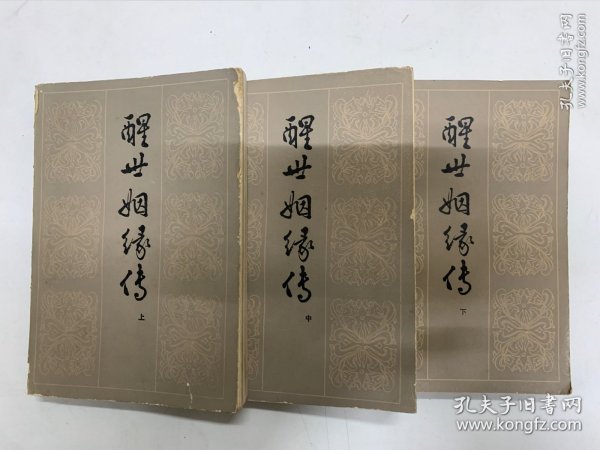 醒世姻缘传
上
醒世姻缘传
中
醒世姻缘传
下
孔夫子旧书网
www.kongfz.com
孔夫子旧书网
www.kongfz.com